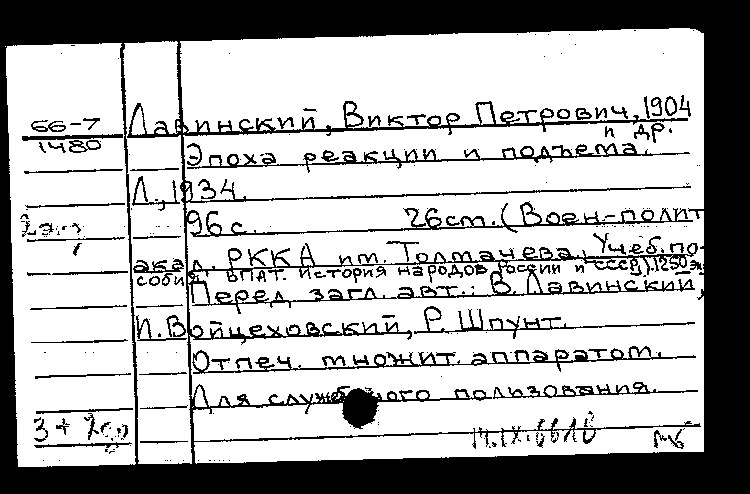 66-7
1480
Лавинский, Виктор Петрович, 1904
и др.
Эпоха реакции и подъема.
Л., 1934.
96 с. 26 cm. (Воен-полит
акад. РККА им. Толмачева, Учеб. по-
собия. ВПАТ. История народов России и СССР). 1250 э
Перед загл. авт.: В. Лавинский,
И. Войцеховский, Р. Шпунт.
Отпеч. множит. аппаратом.
Для служебного пользования.
3 +